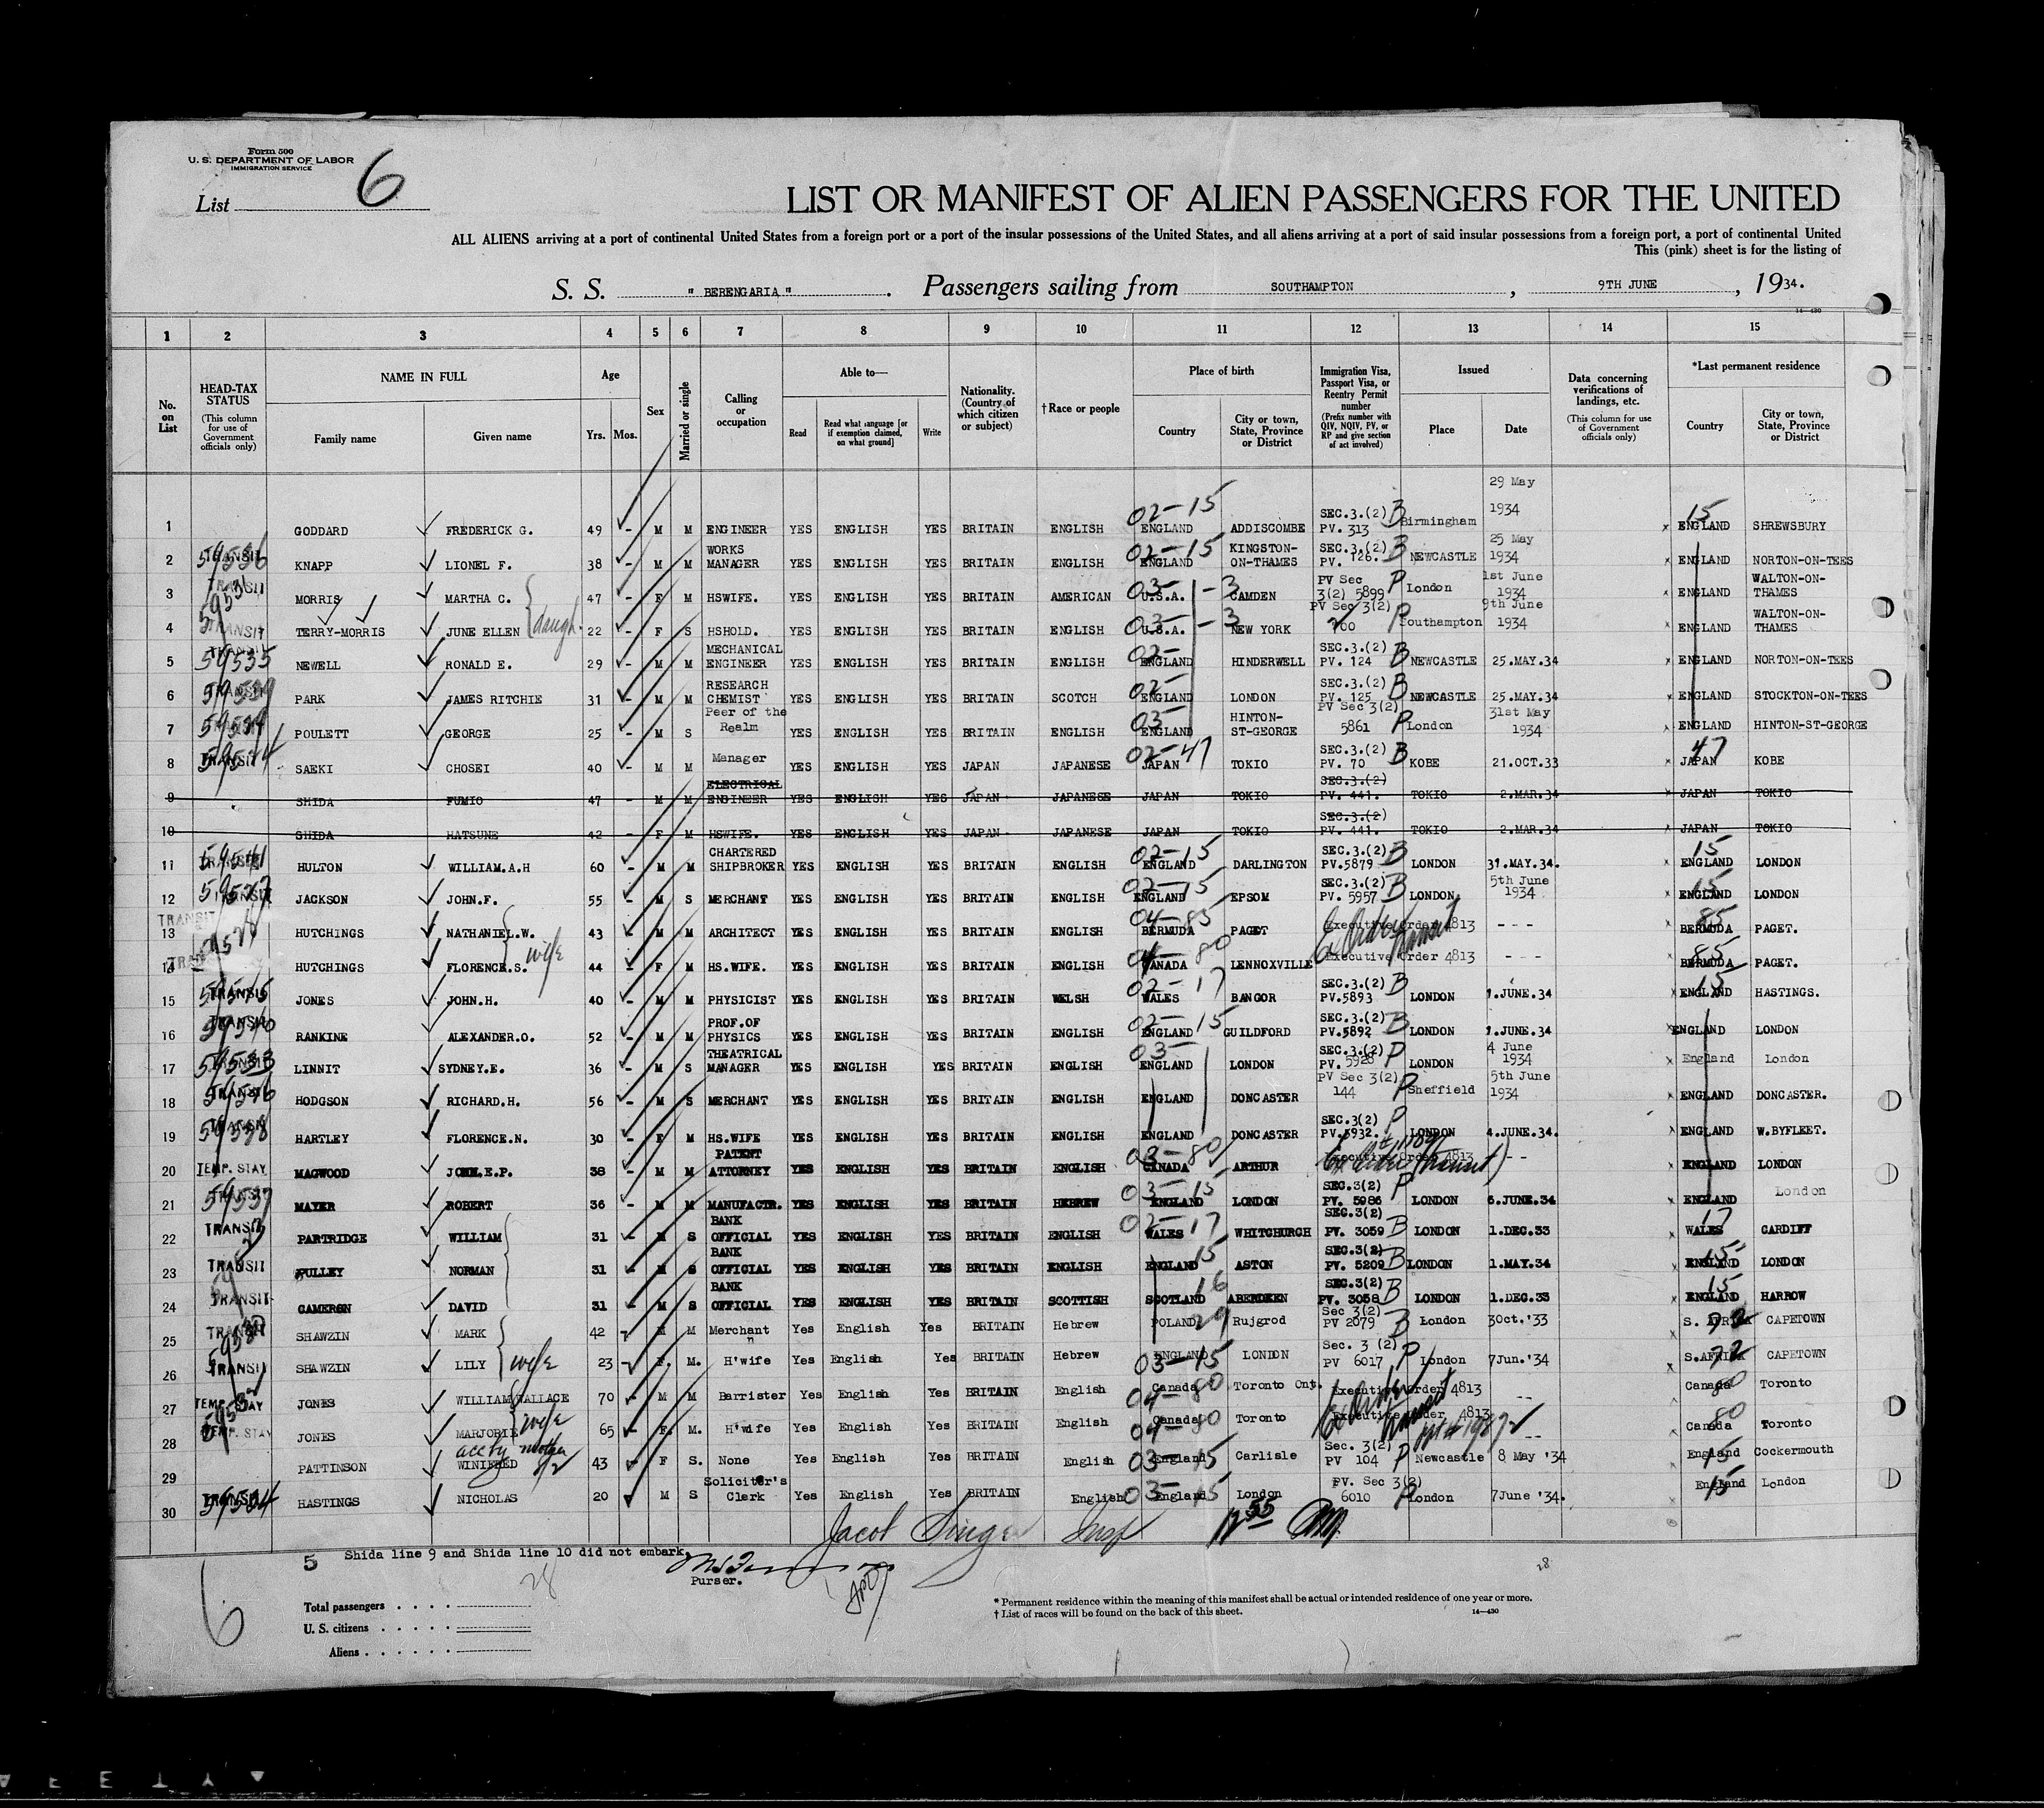 Form 500
U. S. DEPARTMENT OF LABOR
IMMIGRATION SERVICE
List 6
LIST OR MANIFEST OF ALIEN PASSENGERS FOR THE UNITED
ALL ALIENS arriving at a port of continental United States from a foreign port or a port of the insular possessions of the United States, and all aliens arriving at a port of said insular possessions from a foreign port, a port of continental United
This (pink) sheet is for the listing of
S. S. " BERENGARIA " . Passengers sailing from SOUTHAMPTON , 9TH JUNE , 1934.
14—430
1 2 3 4 5 6 7 8 9 10 11 12 13 14 15
No. on List
HEAD-TAX STATUS (This column for use of Government officials only)
NAME IN FULL
Family name Given name
Age
Yrs. Mos.
Sex
Married or single
Calling or occupation
Able to—
Read Read what language [or if exemption claimed, on what ground] Write
Nationality. (Country of which citizen or subject)
†Race or people
Place of birth
Country City or town, State, Province or District
Immigration Visa, Passport Visa, or Reentry Permit number (Prefix number with QIV, NQIV, PV, or RP and give section of act involved)
Issued
Place Date
Data concerning verifications of landings, etc. (This column for use of Government officials only)
*Last permanent residence
Country City or town, State, Province or District
1 GODDARD FREDERICK G. 49 - M M ENGINEER YES ENGLISH YES BRITAIN ENGLISH 02-15 ENGLAND ADDISCOMBE SEC.3.(2) PV. 313 B Birmingham 29 May 1934 x 15 ENGLAND SHREWSBURY
2 TRANSIT 59536 KNAPP LIONEL F. 38 - M M WORKS MANAGER YES ENGLISH YES BRITAIN ENGLISH 02-15 ENGLAND KINGSTON-ON-THAMES SEC.3.(2) PV. 126. B NEWCASTLE 25 May 1934 x ENGLAND NORTON-ON-TEES
3 TRANSIT MORRIS MARTHA C. 47 - F M HSWIFE. YES ENGLISH YES BRITAIN AMERICAN 03-3 U.S.A. CAMDEN PV Sec 3(2) 5899 P London 1st June 1934 x ENGLAND WALTON-ON-THAMES
4 TRANSIT TERRY-MORRIS JUNE ELLEN daugh. 22 - F S HSHOLD. YES ENGLISH YES BRITAIN ENGLISH 03-3 U.S.A. NEW YORK PV Sec 3(2) 700 P Southampton 9th June 1934 x ENGLAND WALTON-ON-THAMES
5 TRANSIT 59535 NEWELL RONALD E. 29 - M M MECHANICAL ENGINEER YES ENGLISH YES BRITAIN ENGLISH 02- ENGLAND HINDERWELL SEC.3.(2) PV. 124 B NEWCASTLE 25.MAY.34 x ENGLAND NORTON-ON-TEES
6 TRANSIT PARK JAMES RITCHIE 31 - M M RESEARCH CHEMIST YES ENGLISH YES BRITAIN SCOTCH 02- ENGLAND LONDON SEC.3.(2) PV. 125 B NEWCASTLE 25.MAY.34 x ENGLAND STOCKTON-ON-TEES
7 POULETT GEORGE 25 - M S Peer of the Realm YES ENGLISH YES BRITAIN ENGLISH 03- ENGLAND HINTON-ST-GEORGE PV Sec 3(2) 5861 P London 31st May 1934 x ENGLAND HINTON-ST-GEORGE
8 TRANSIT SAEKI CHOSEI 40 - M M Manager YES ENGLISH YES JAPAN JAPANESE 02-47 JAPAN TOKIO SEC.3.(2) PV. 70 B KOBE 21.OCT.33 x 47 JAPAN KOBE
9 SHIDA FUMIO 47 - M M ELECTRICAL ENGINEER YES ENGLISH YES JAPAN JAPANESE JAPAN TOKIO SEC.3.(2) PV. 441. TOKIO 2.MAR.34 x JAPAN TOKIO
10 SHIDA HATSUNE 42 - F M HSWIFE. YES ENGLISH YES JAPAN JAPANESE JAPAN TOKIO SEC.3.(2) PV. 441. TOKIO 2.MAR.34 x JAPAN TOKIO
11 TRANSIT 59541 HULTON WILLIAM.A.H 60 - M M CHARTERED SHIPBROKER YES ENGLISH YES BRITAIN ENGLISH 02-15 ENGLAND DARLINGTON SEC.3.(2) PV.5879 B LONDON 31.MAY.34. x 15 ENGLAND LONDON
12 TRANSIT JACKSON JOHN.F. 55 - M S MERCHANT YES ENGLISH YES BRITAIN ENGLISH 02-15 ENGLAND EPSOM SEC.3.(2) PV. 5957 B LONDON 5th June 1934 x 15 ENGLAND LONDON
13 TRANSIT HUTCHINGS NATHANIEL.W. 43 - M M ARCHITECT YES ENGLISH YES BRITAIN ENGLISH 04-85 BERMUDA PAGET Executive Order 4813 - - - 85 BERMUDA PAGET.
14 HUTCHINGS FLORENCE.S. wife 44 - F M HS.WIFE. YES ENGLISH YES BRITAIN ENGLISH 04-80 CANADA LENNOXVILLE Executive Order 4813 - - - 85 BERMUDA PAGET.
15 TRANSIT JONES JOHN.H. 40 - M M PHYSICIST YES ENGLISH YES BRITAIN WELSH 02-17 WALES BANGOR SEC.3.(2) PV.5893 B LONDON 1.JUNE.34 x 15 ENGLAND HASTINGS.
16 TRANSIT RANKINE ALEXANDER.O. 52 - M M PROF.OF PHYSICS YES ENGLISH YES BRITAIN ENGLISH 02-15 ENGLAND GUILDFORD SEC.3.(2) PV.5892 B LONDON 1.JUNE.34 x ENGLAND LONDON
17 59533 LINNIT SYDNEY.E. 36 - M S THEATRICAL MANAGER YES ENGLISH YES BRITAIN ENGLISH 03- ENGLAND LONDON SEC.3.(2) PV. 5928 P LONDON 4 June 1934 x England London
18 TRANSIT HODGSON RICHARD.H. 56 - M S MERCHANT YES ENGLISH YES BRITAIN ENGLISH ENGLAND DONCASTER PV Sec 3(2) 144 P Sheffield 5th June 1934 x ENGLAND DONCASTER.
19 TRANSIT 59538 HARTLEY FLORENCE.N. 30 - F M HS.WIFE YES ENGLISH YES BRITAIN ENGLISH ENGLAND DONCASTER SEC.3(2) PV.5932. P LONDON 4.JUNE.34. x ENGLAND W.BYFLEET.
20 TEMP. STAY MAGWOOD JOHN.E.P. 38 - M M PATENT ATTORNEY YES ENGLISH YES BRITAIN ENGLISH 03-80 CANADA ARTHUR Executive Order 4813 - - x ENGLAND LONDON
21 59537 MAYER ROBERT 36 - M M MANUFACTR. YES ENGLISH YES BRITAIN HEBREW 03-15 ENGLAND LONDON SEC.3(2) PV. 5986 P LONDON 6.JUNE.34 x ENGLAND London
22 TRANSIT PARTRIDGE WILLIAM 31 M S BANK OFFICIAL YES ENGLISH YES BRITAIN ENGLISH 02-17 WALES WHITCHURCH SEC.3(2) PV. 3059 B LONDON 1.DEC.33 x 17 WALES CARDIFF
23 TRANSIT PULLEY NORMAN 31 M S BANK OFFICIAL YES ENGLISH YES BRITAIN ENGLISH 15 ENGLAND ASTON SEC.3(2) PV. 5209 B LONDON 1.MAY.34 x 15 ENGLAND LONDON
24 TRANSIT CAMERON DAVID 31 M S BANK OFFICIAL YES ENGLISH YES BRITAIN SCOTTISH 16 SCOTLAND ABERDEEN SEC.3(2) PV. 3058 B LONDON 1.DEC.33 x 15 ENGLAND HARROW
25 TRANSIT SHAWZIN MARK 42 - M M Merchant Yes English Yes BRITAIN Hebrew POLAND 29 Rujgrod Sec 3(2) PV 2079 B London 3Oct.'33 x S. AFRICA CAPETOWN
26 TRANSIT SHAWZIN LILY wife 23 - F. M. H'wife Yes English Yes BRITAIN Hebrew ENGLAND 03-15 LONDON Sec. 3 (2) PV 6017 P London 7Jun.'34 x S.AFRICA 72 CAPETOWN
27 TEMP. STAY JONES WILLIAM WALLACE 70 - M M Barrister Yes English Yes BRITAIN English Canada 04-80 Toronto Ont. Executive Order 4813 -- Canada 80 Toronto
28 TEMP. STAY JONES MARJORIE wife 65 - F. M. H'wife Yes English Yes BRITAIN English Canada 04-80 Toronto Executive Order 4813 -- Canada 80 Toronto
29 PATTINSON WINIFRED accby mother 43 - F S. None Yes English Yes BRITAIN English 03-15 England Carlisle Sec. 3(2) PV 104 P Newcastle 8 May '34 England 15 Cockermouth
30 TRANSIT HASTINGS NICHOLAS 20 M S Soliciter's Clerk Yes English Yes BRITAIN English 03-15 England London PV. Sec 3(2) 6010 P London 7June '34. England 15 London
Jacob Singer Insp 12 55 PM
5 Shida line 9 and Shida line 10 did not embark.
Purser.
28
28
6
Total passengers . . . .
U. S. citizens . . . . .
Aliens . . . . . .
* Permanent residence within the meaning of this manifest shall be actual or intended residence of one year or more.
† List of races will be found on the back of this sheet.
14—430